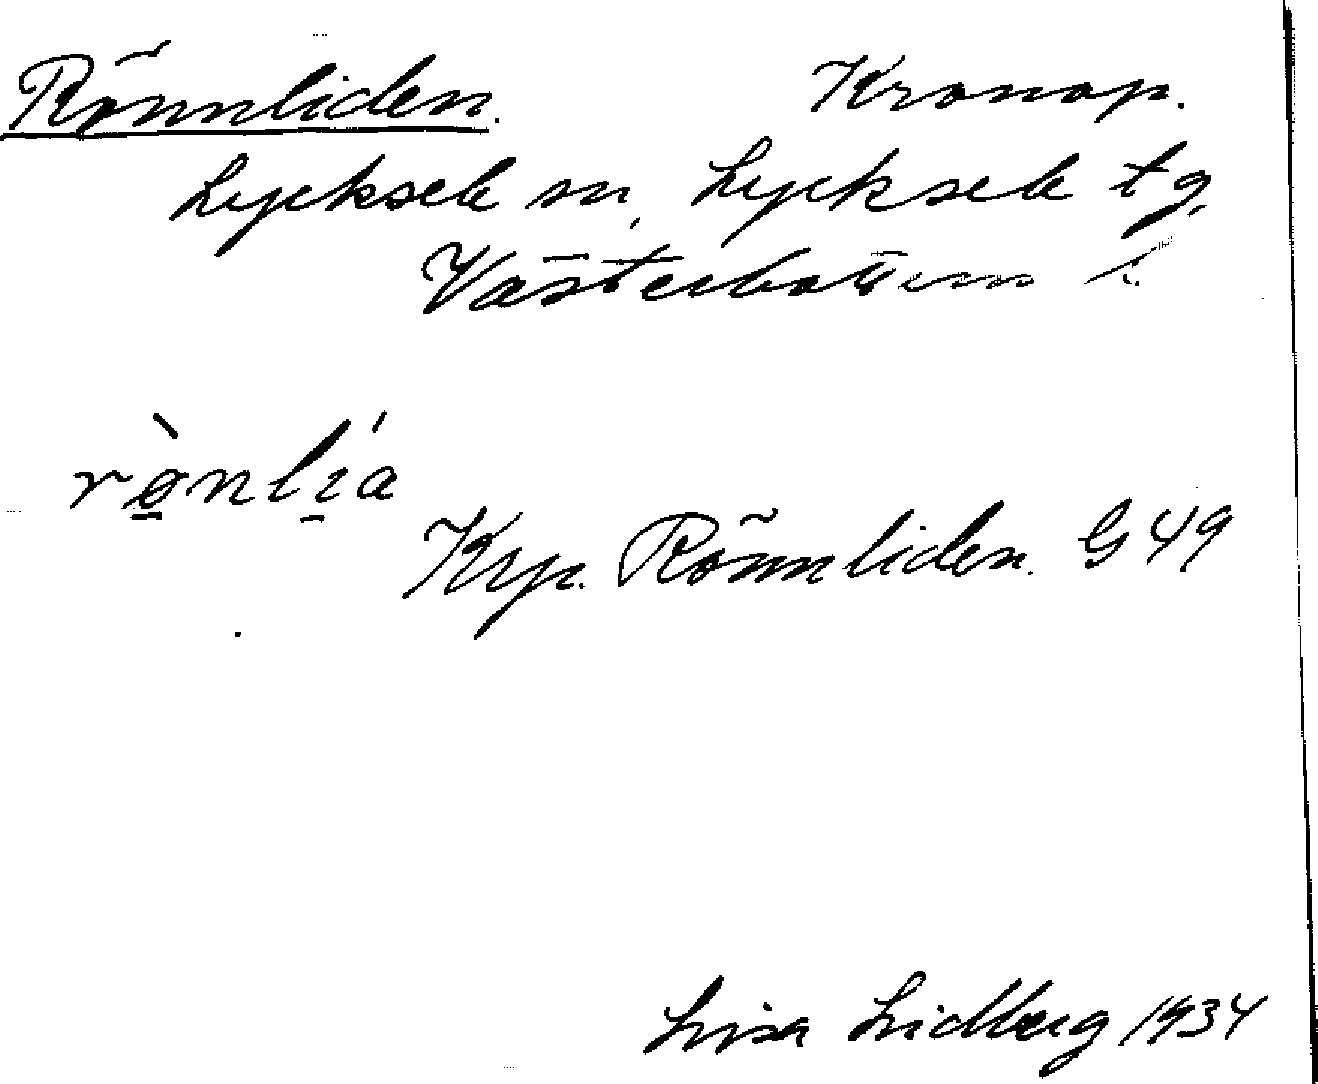 Rönnliden. Kronop.
Lycksele sn, Lycksele tg,
Västerbottens l.
rø̱̀nlı̱́a
Krp. Rönnliden. G 49
Lisa Lidberg 1934